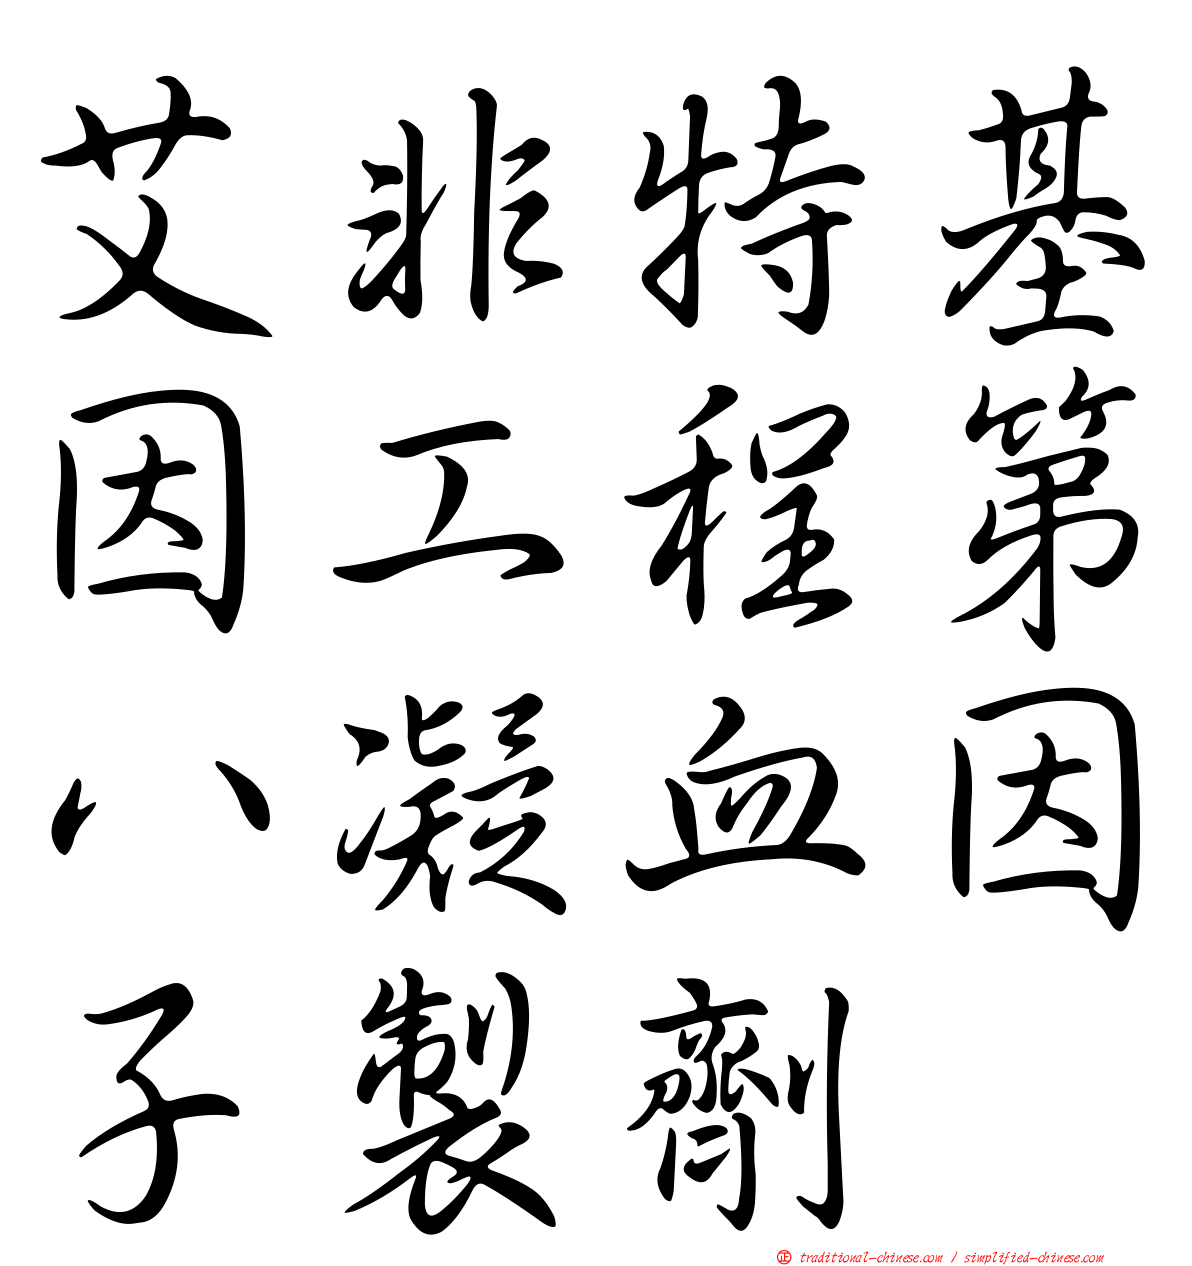 艾非特基
因工程第
八凝血因
子製劑
正 traditional-chinese.com / simplified-chinese.com